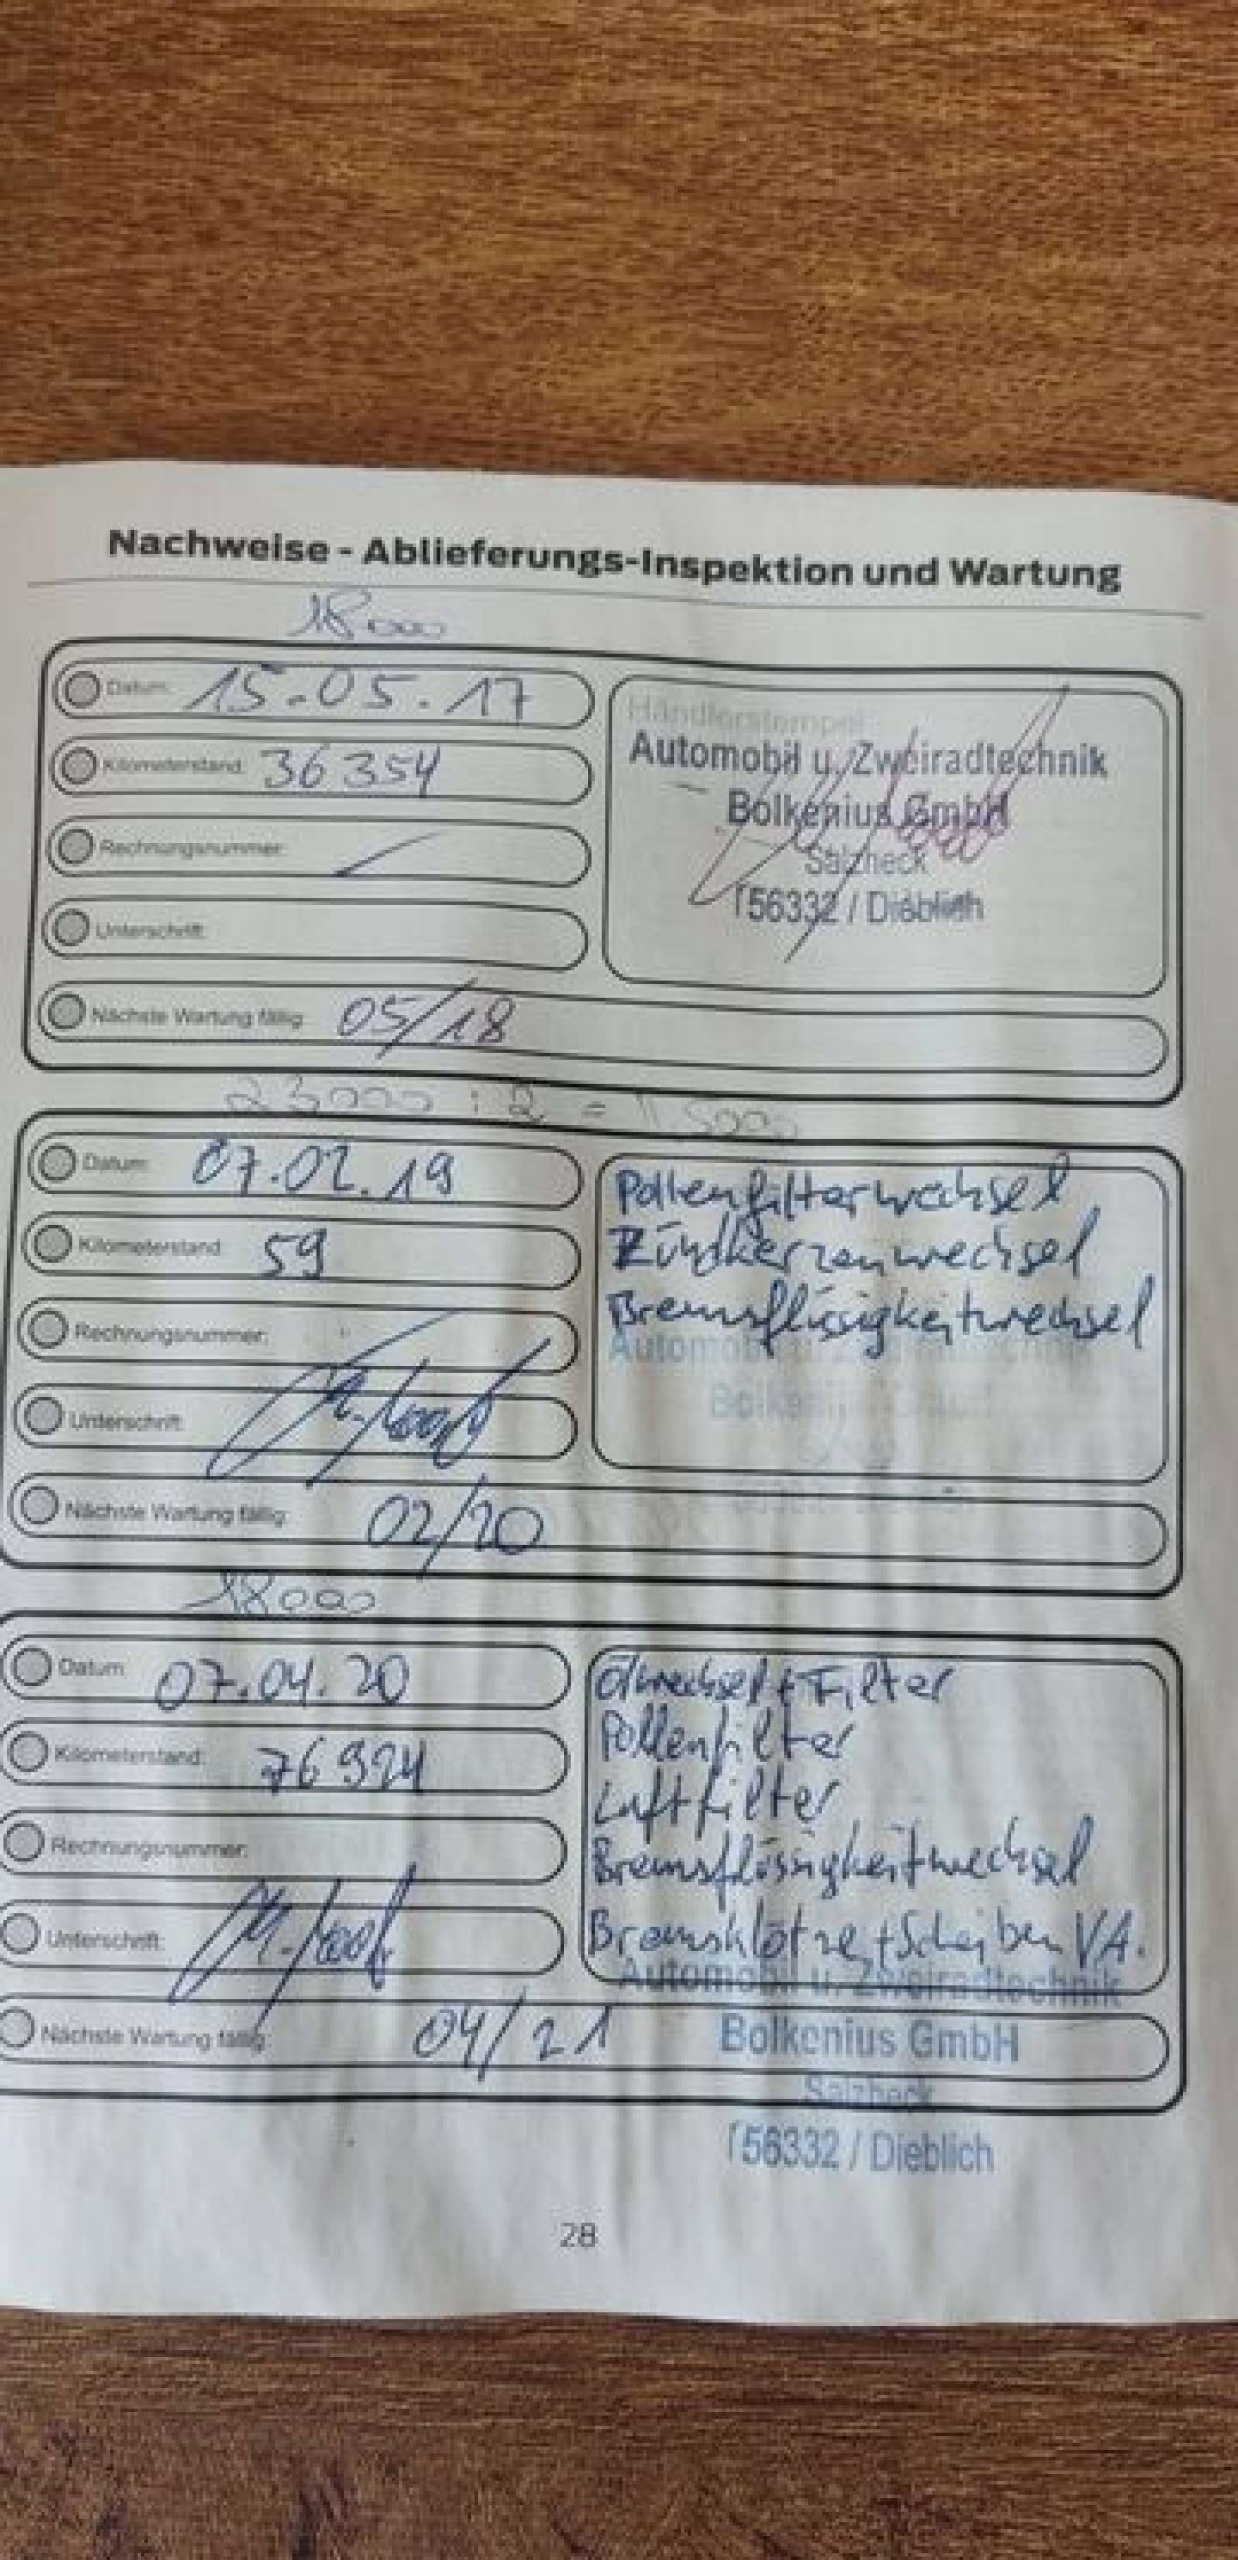 Nachweise - Ablieferungs-Inspektion und Wartung
18000
Datum: 15.05.17
Händlerstempel
Kilometerstand: 36354
Automobil u. Zweiradtechnik
Bolkenius GmbH
Rechnungsnummer:
Salzheck
56332 / Dieblich
Unterschrift:
Nächste Wartung fällig: 05/18
23000 : 2 =
Datum: 07.02.19
Pollenfilterwechsel
Kilometerstand: 59
Zündkerzenwechsel
Bremsflüssigkeitwechsel
Rechnungsnummer:
Automobil u. Zweiradtechnik
Unterschrift:
Bolkenius GmbH
Nächste Wartung fällig: 02/20
18000
Datum: 07.04.20
Ölwechsel + Filter
Kilometerstand: 76924
Pollenfilter
Luftfilter
Rechnungsnummer:
Bremsflüssigkeitwechsel
Unterschrift:
Bremsklötze + Scheiben VA.
Automobil u. Zweiradtechnik
Nächste Wartung fällig: 04/21
Bolkenius GmbH
Salzheck
56332 / Dieblich
28